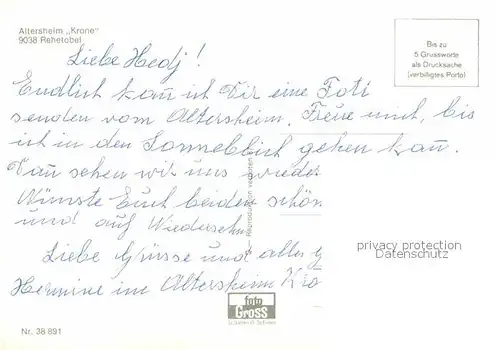 Altersheim „Krone"
9038 Rehetobel
Bis zu
5 Grussworte
als Drucksache
(verbilligtes Porto)
Liebe Hedj!
Endlich kan̄ ich Dir eine Foti
senden vom Altersheim. Freue mich, bis
ich in den Sonneblich gehen kan̄.
Dan̄ sehen wir uns wieder
Wünste Euch beiden schön
und auf Wiedersehn
Liebe Grüsse und alles g
Hermine im Altersheim Kro
Reproduktion verboten
privacy protection
Datenschutz
foto
Gross
St. Gallen
Nr. 38 891